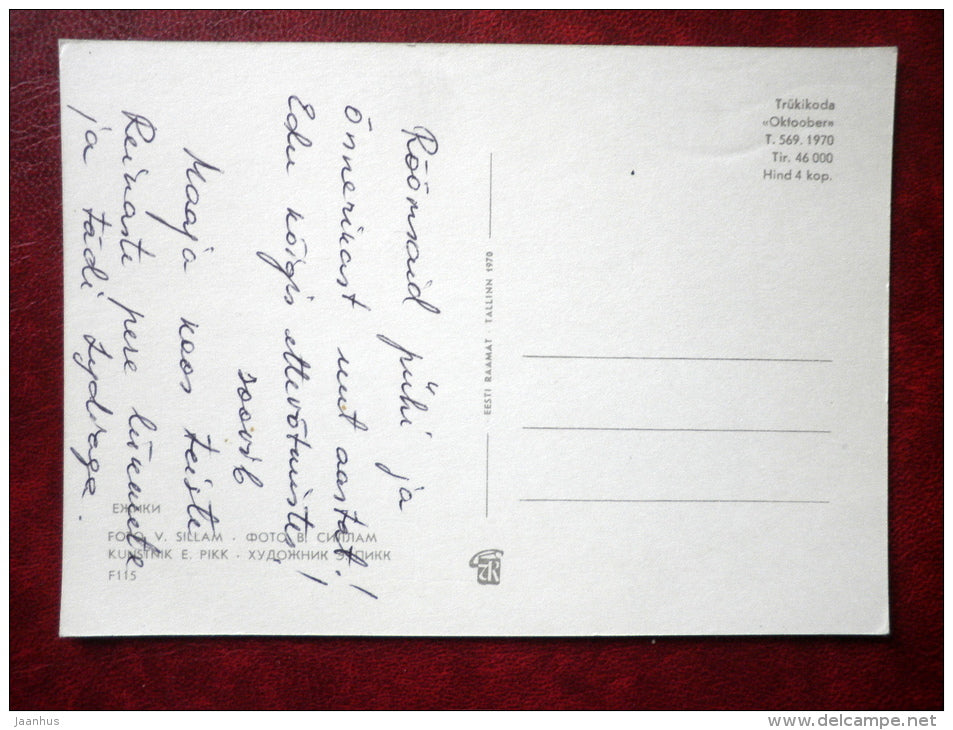 Rõõmsaid pühi ja
õnnerikast uut aastat!
Edu kõigis ettevõtmistes!
soovib
Maaja koos teiste
Reinaste pere liikmetega
ja tädi Lydiaga.
Trükikoda
«Oktoober»
T. 569. 1970
Tir. 46 000
Hind 4 kop.
EESTI RAAMAT TALLINN 1970
ЕЖИКИ
FOTO V. SILLAM · ФОТО В. СИЛЛАМ
KUNSTNIK E. PIKK · ХУДОЖНИК Э. ПИКК
F115
jaanhus
www.delcampe.net